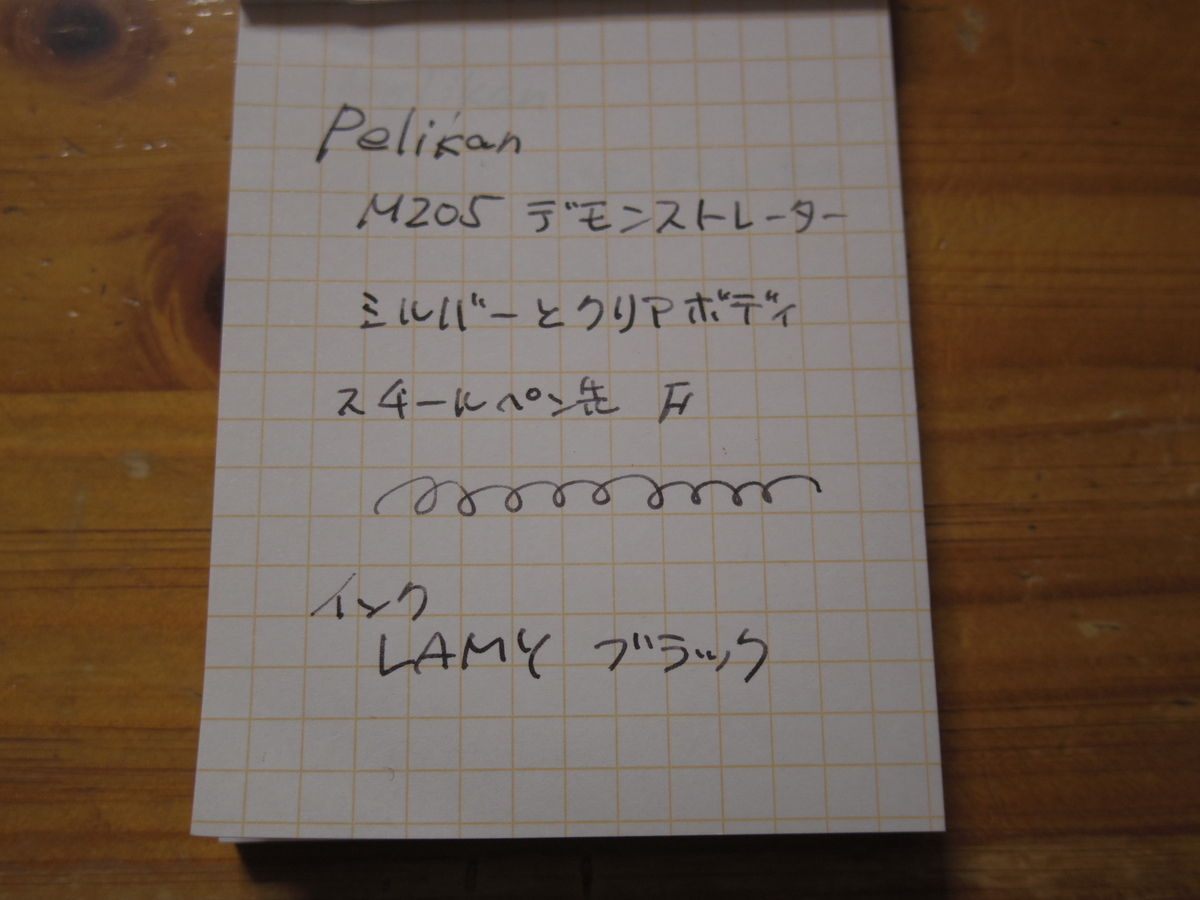 Pelikan
M205 デモンストレーター
シルバーとクリアボディ
スチールペン先 F
インク
LAMY ブラック